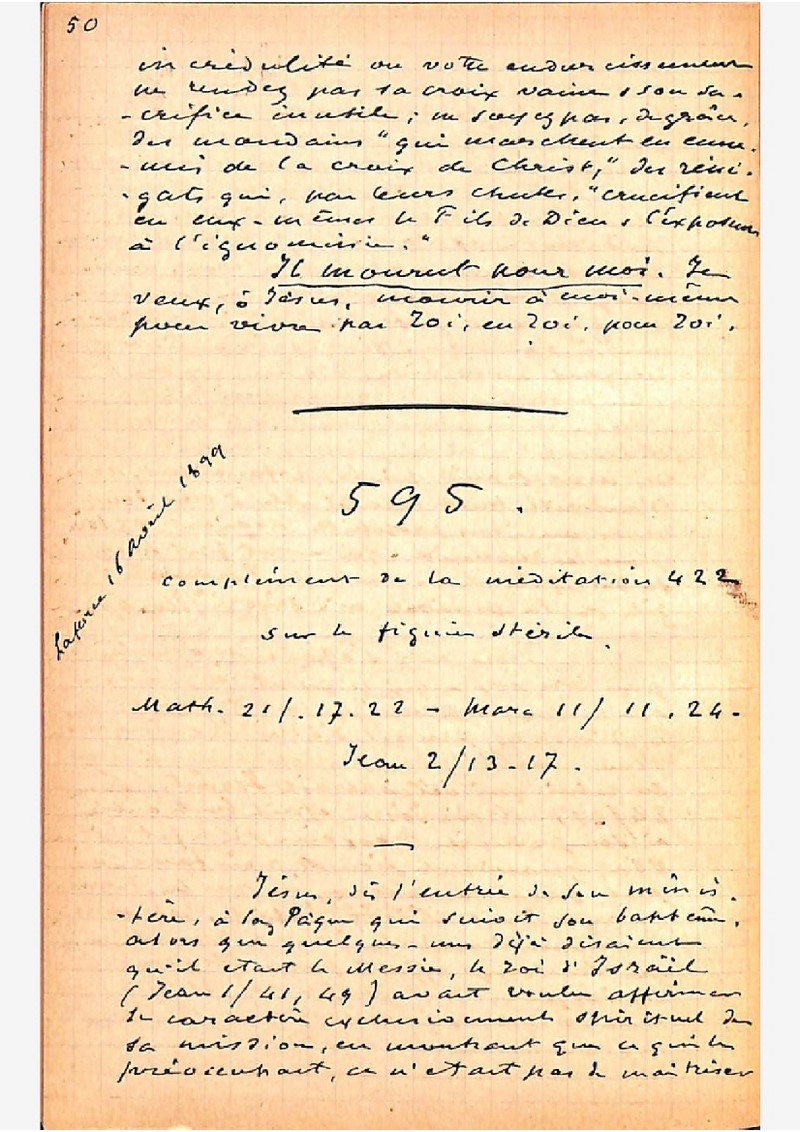 50
incrédulité ou votre endurcissement
ne rendez pas sa croix vaine & son sa-
-crifice inutile ; ne soyez pas, de grâce,
des mondains "qui marchent en enne-
-mis de la croix de Christ," des réné-
-gats qui, par leurs chutes, "crucifient
en eux-mêmes le Fils de Dieu & l'exposent
à l'ignominie."
Il mourut pour moi. Je
veux, ô Jésus, mourir à moi-même
pour vivre par Toi, en Toi, pour Toi.
16 avril 1899
595.
complément de la méditation 422
sur le figuier stérile.
Math. 21/.17.22 - Marc 11/11.24-
Jean 2/13-17.
Jésus, dès l'entrée de son minis-
-tère, à la Pâque qui suivit son baptême,
alors que quelques-uns déjà disaient
qu'il était le Messie, le roi d'Israël
(Jean 1/41, 49) avait voulu affirmer
le caractère exclusivement spirituel de
sa mission, en montrant que ce qui le
préoccupait, ce n'était pas de maîtriser